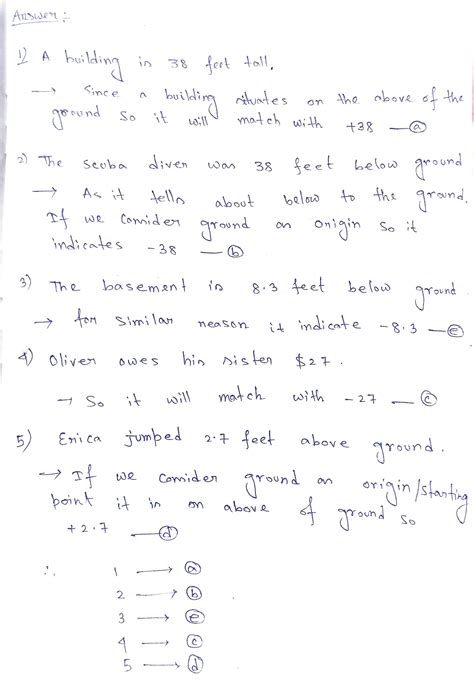 Answer :-
1) A building is 38 feet tall.
→ Since a building situates on the above of the
ground so it will match with +38 — ⓐ
2) The scuba diver was 38 feet below ground
→ As it tells about below to the ground.
If we consider ground as origin so it
indicates -38 — ⓑ
3) The basement is 8.3 feet below ground
→ for similar reason it indicate -8.3 — ⓔ
4) Oliver owes his sister $27.
→ So it will match with -27 — ⓒ
5) Erica jumped 2.7 feet above ground.
→ If we consider ground as origin/starting
point it is on above of ground so
+2.7 — ⓓ
∴ 1 → ⓐ
2 → ⓑ
3 → ⓔ
4 → ⓒ
5 → ⓓ